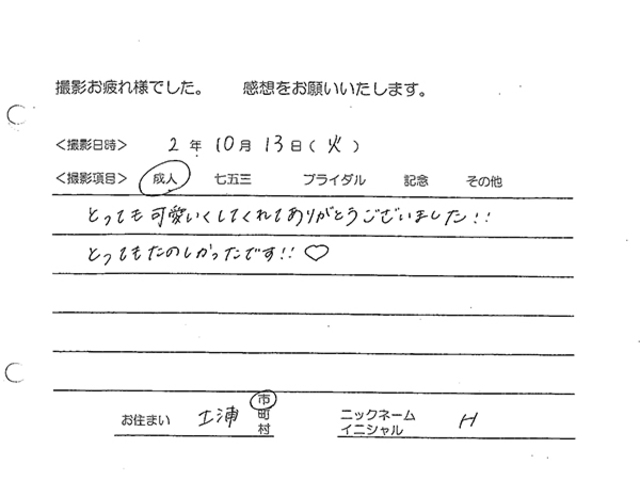 撮影お疲れ様でした。 感想をお願いいたします。
<撮影日時> 2 年 10 月 13 日( 火 )
<撮影項目> 成人 七五三 ブライダル 記念 その他
とっても可愛いくしてくれてありがとうございました!!
とってもたのしかったです!!♡
お住まい 土浦 市 町 村
ニックネーム イニシャル H